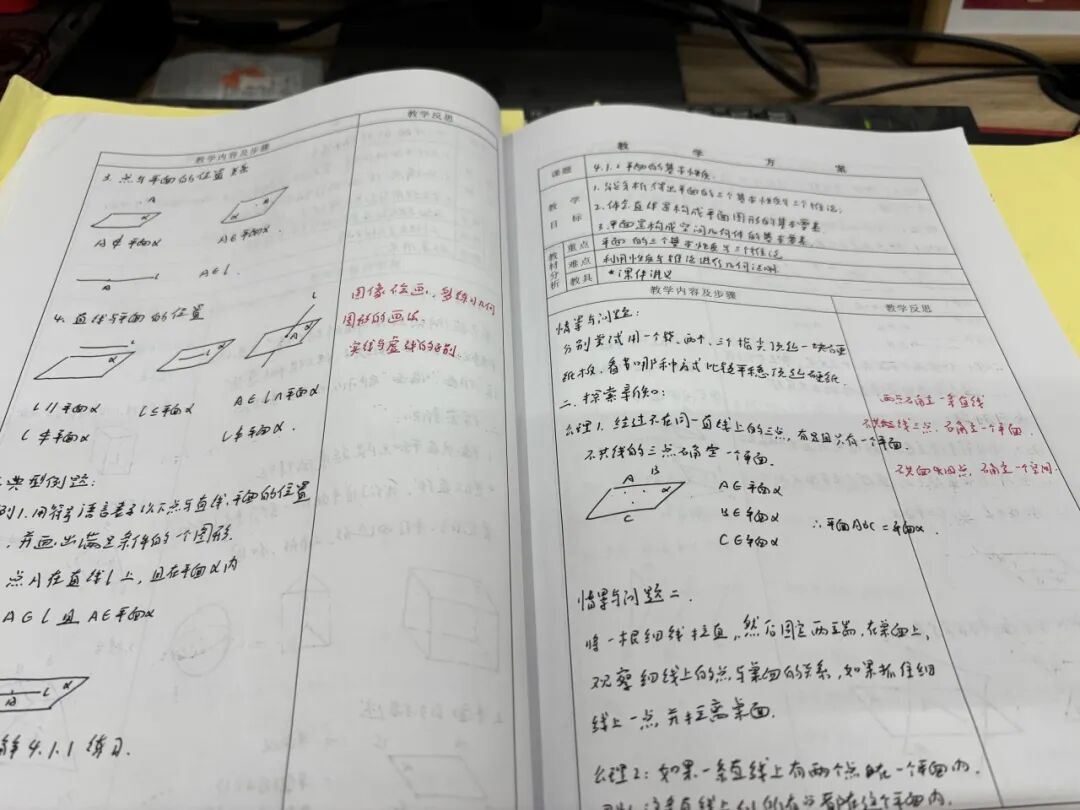 教学内容及步骤
教学反思
3. 点与平面的位置关系
A
α
A∉平面α
α
A∈平面α.
l
A∈l.
4. 直线与平面的位置
l
α
l
α
l
A
α
l∥平面α
l⊆平面α
A∈l∩平面α
l⊄平面α
l⊄平面α.
图像绘画,多练习几何
图形的画法
实线与虚线的区别.
典型例题:
例1. 用符号语言表示以下点与直线,平面的位置
,并画出满足条件的一个图形.
点A在直线l上,且在平面α内
A∈l 且 A∈平面α
A
l
α
4.1.1 练习.
教 学 方 案
课题
4.1.2 平面的基本性质.
教学目标
2. 体会直线是构成平面图形的基本要素
3. 平面是构成空间几何体的基本要素
教材分析
重点
平面的三个基本性质与三个推论
难点
利用性质与推论进行几何证明
教具
*课件讲义
教学内容及步骤
教学反思
情景与问题:
分别尝试用一个、两个、三个指尖顶起一块硬
纸板,看看哪种方式比较平稳顶起硬纸
二. 探索新知:
公理1. 经过不在同一直线上的三点,有且只有一个平面.
不共线的三点确定一个平面.
两点确定一条直线
不共线三点 确定一个平面
不共面四点 确定一个空间
A
B
C
α
A∈平面α
B∈平面α
C∈平面α
∴平面ABC=平面α.
情景与问题二.
将一根细线拉直,然后固定两端,在桌面上,
观察细线上的点与桌面的关系,如果抓住细
线上一点,并拉离桌面.
公理2:如果一条直线上有两个点在一个平面内,